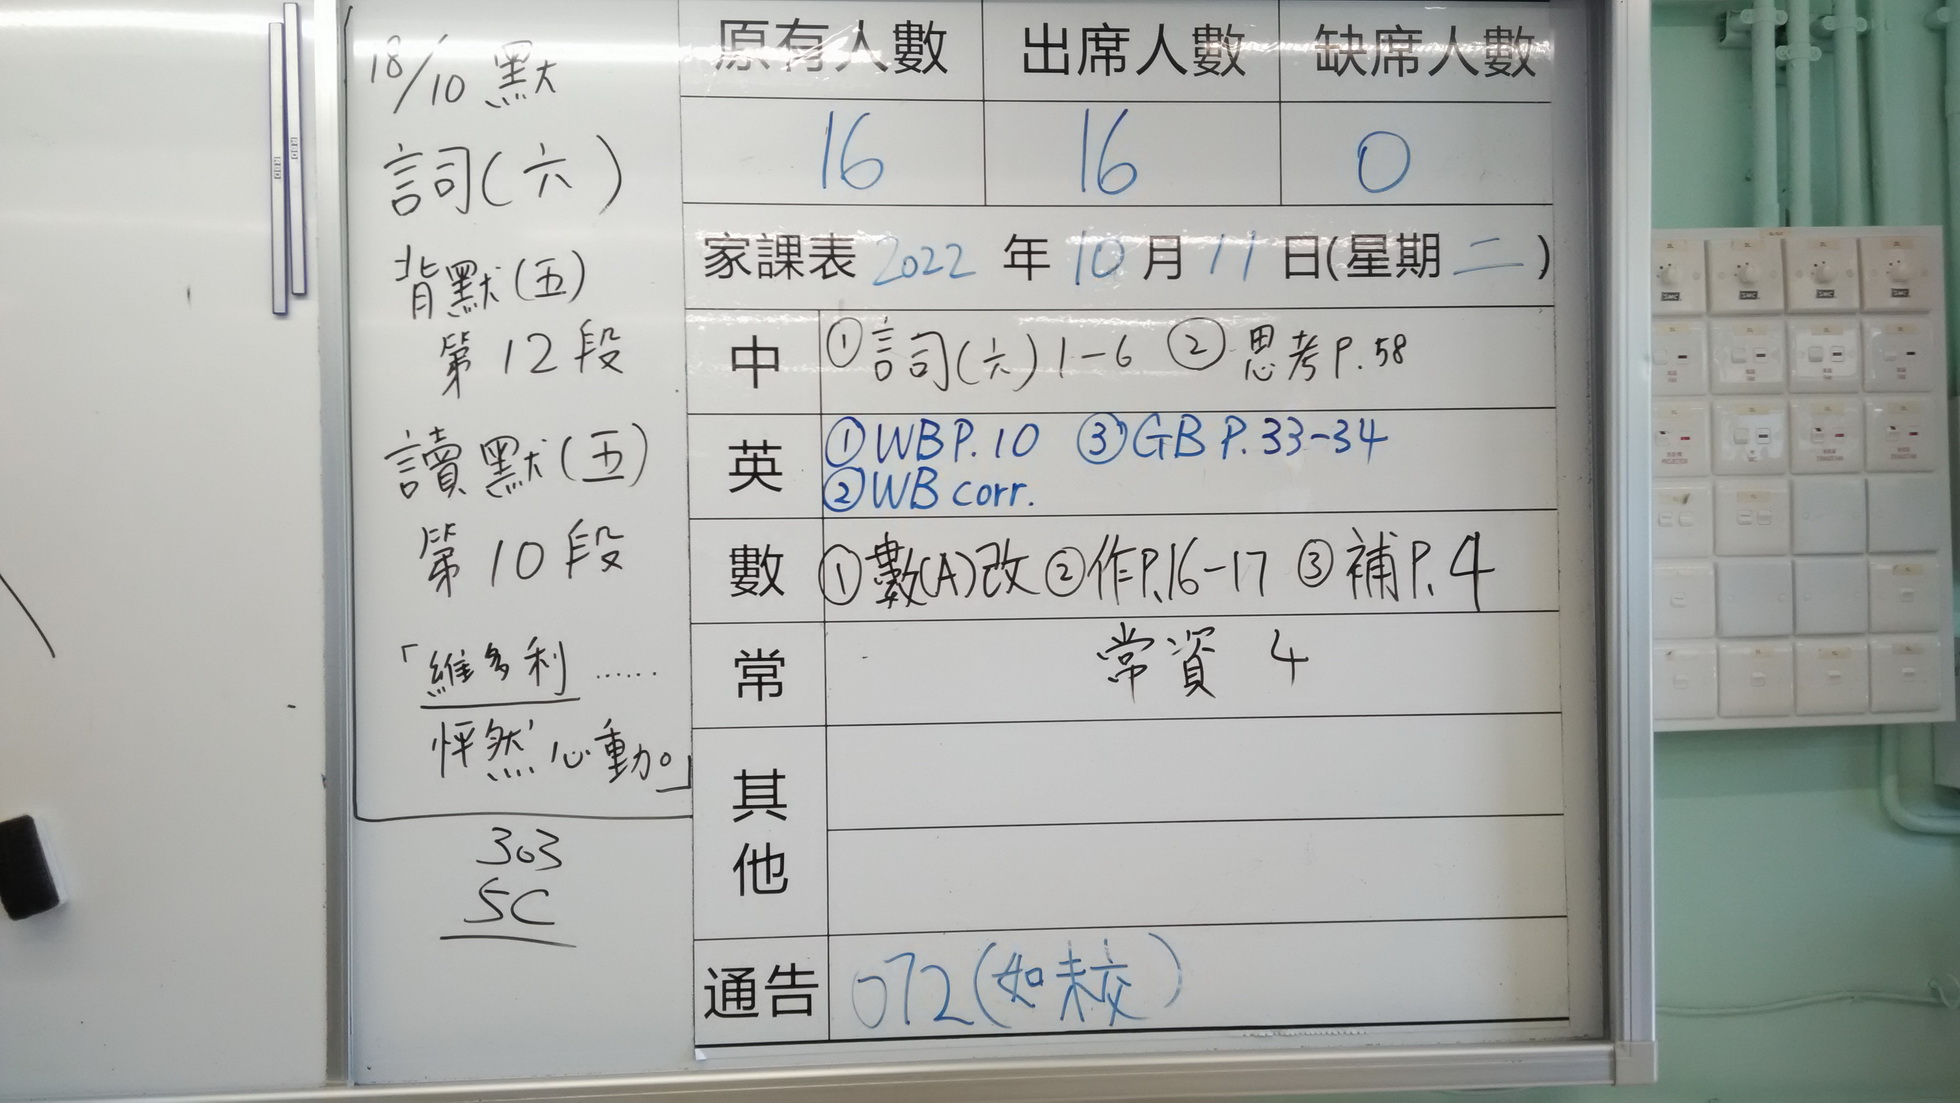 18/10 默
詞(六)
背默(五)
第12段
讀默(五)
第10段
「維多利……
怦然心動。」
303
5C
原有人數 出席人數 缺席人數
16 16 0
家課表 2022 年 10 月 11 日(星期 二 )
中 ①詞(六)1-6 ②思考P.58
英 ①WBP.10 ③GB P.33-34
②WB corr.
數 ①數(A)改 ②作P.16-17 ③補P.4
常 常資 4
其他
通告 072(如未交)